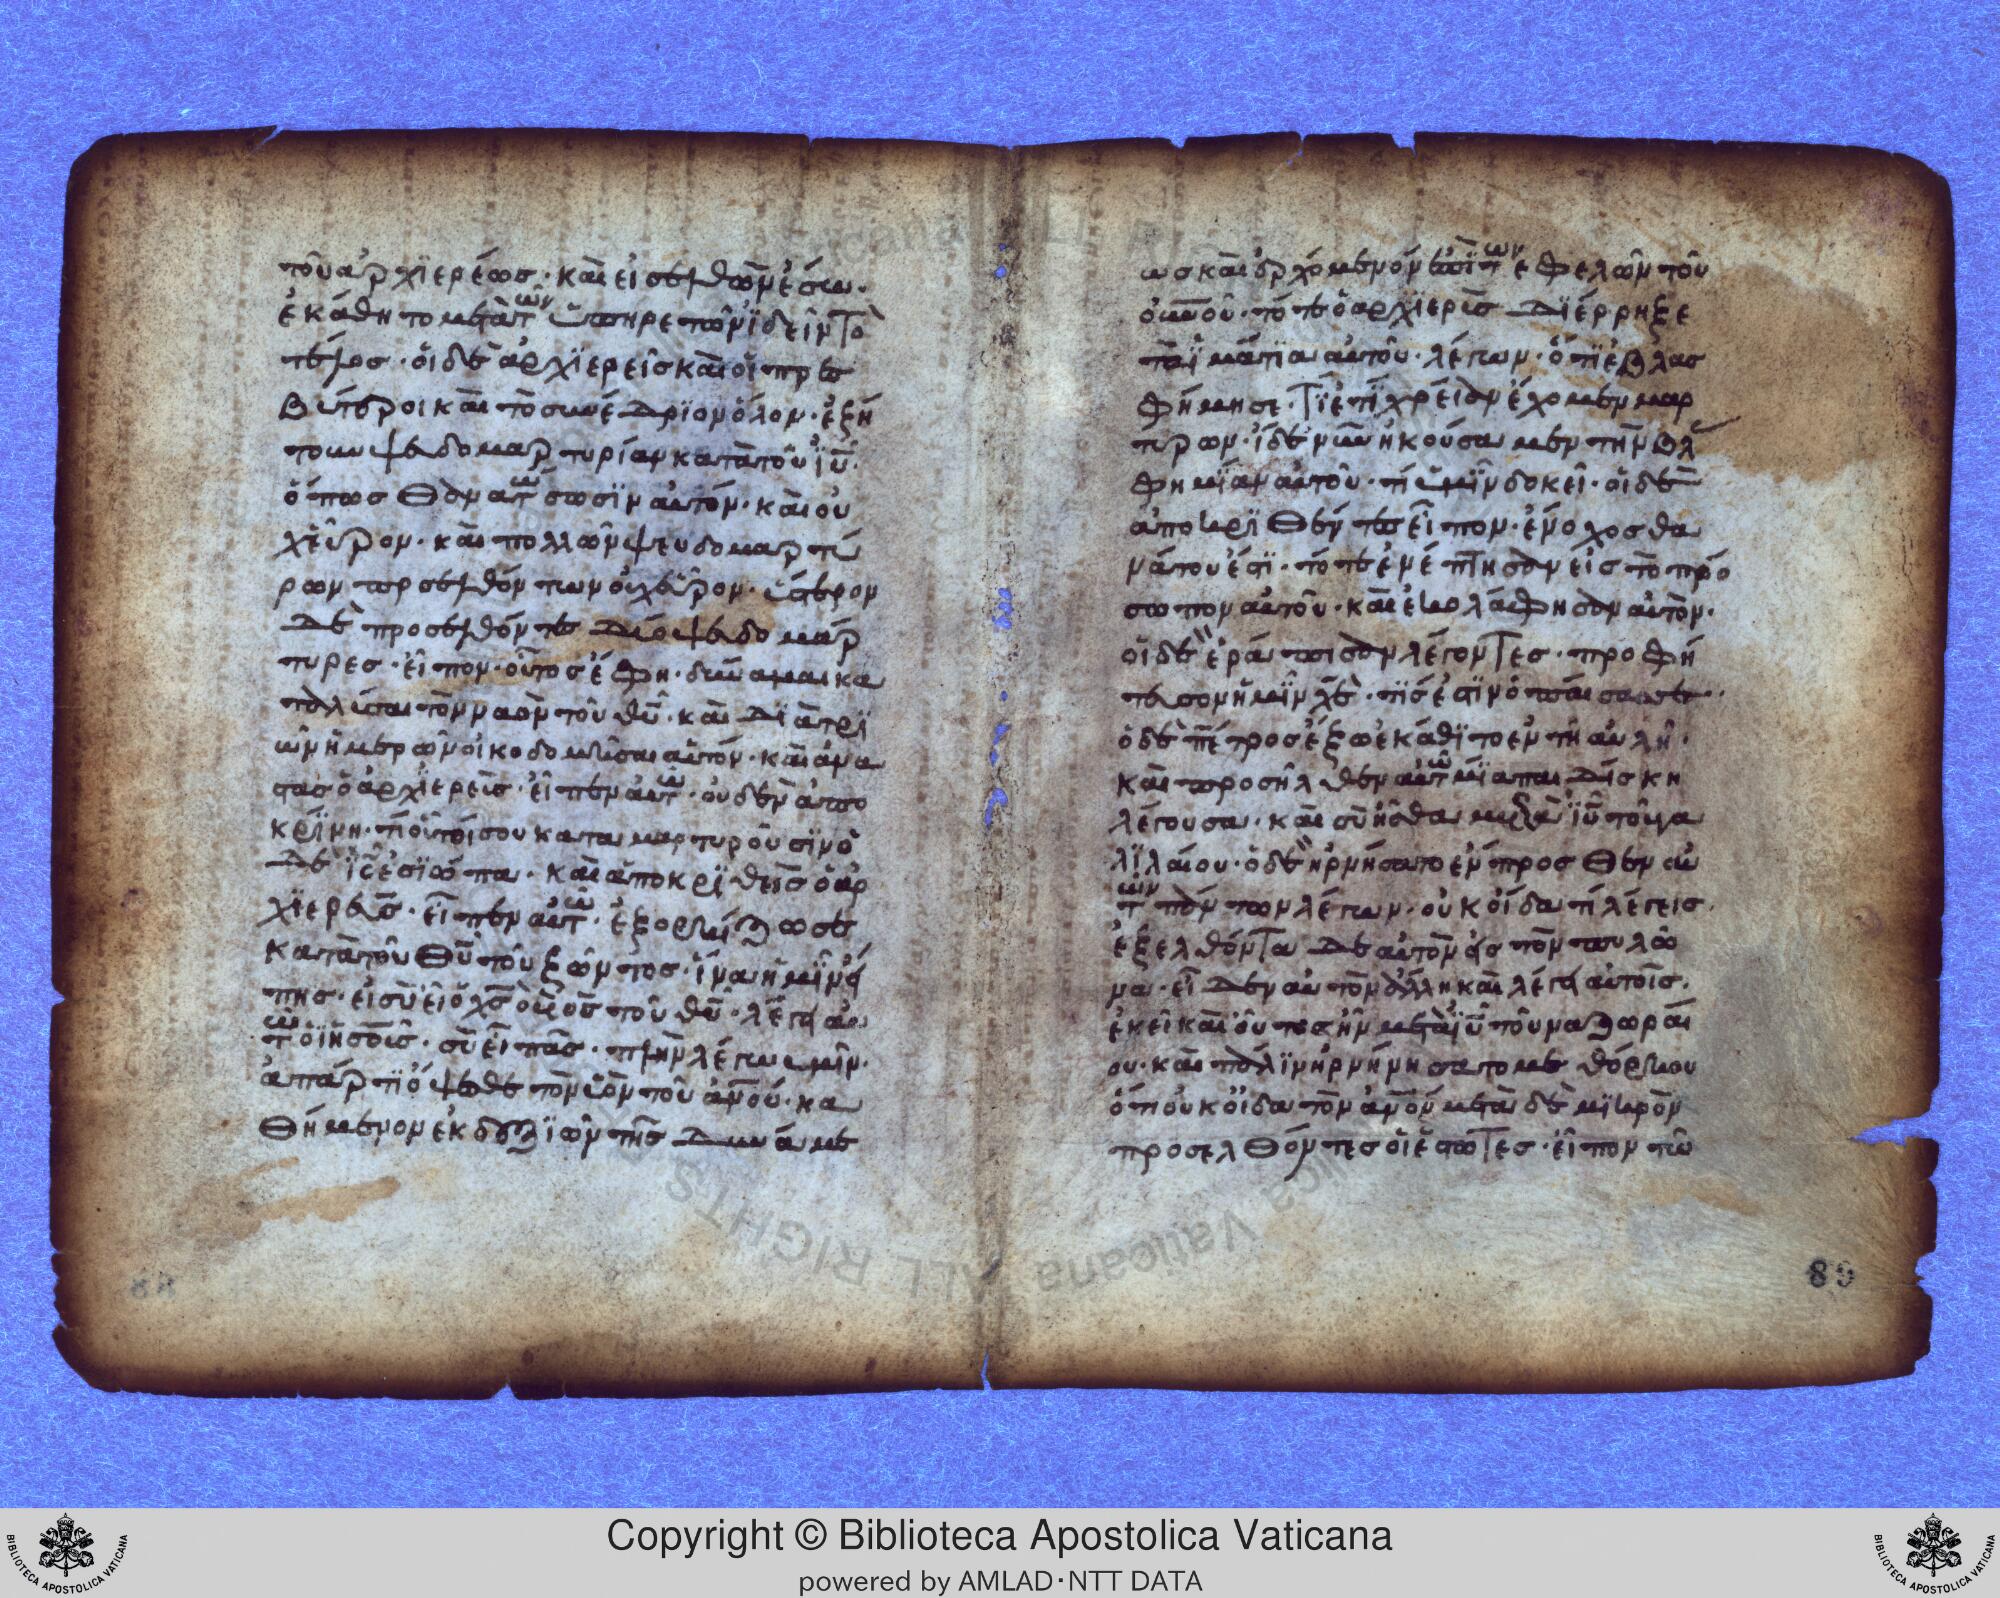 τοῦ ἀρχϊερέως· καὶ εἰσελθὼν ἔσω·
ἐκάθητο μετὰ τῶν ὑπηρετῶν ἰδεῖν τὸ
τέλος· οἱ δὲ ἀρχϊερεῖς καὶ οἱ πρεσ
βύτεροι καὶ τὸ συνέδρϊον ὅλον· ἐζή
τουν ψευδομαρτυρίαν κατὰ τοῦ ἰῦ·
ὅπως θανατώσωσϊν αὐτόν· καὶ οὐ
χ εὗρον· καὶ πολλῶν ψευδομαρτύ
ρων προσελθόντων οὐχ εὗρον· ὕστερον
δὲ προσελθόντες δύο ψευδομάρ
τυρες· εἶπον· οὗτος ἔφη· δύναμαι κα
ταλῦσαι τὸν ναὸν τοῦ θῦ· καὶ δϊὰ τρϊ
ῶν ἡμερῶν οἰκοδομῆσαι αὐτόν· καὶ ἀνα
στὰς ὁ ἀρχϊερεὺς· εἶπεν αὐτῶ· οὐδὲν ἀπο
κρίνη· τί οὗτοί σου καταμαρτυροῦσϊν ὁ
δὲ ἰς ἐσϊώπα· καὶ ἀποκρϊθεὶς ὁ ἀρ
χϊερεὺς· εἶπεν αὐτῶ· ἐξορκίζω σε
κατὰ τοῦ θῦ τοῦ ζῶντος· ἵνα ἡμῖν εἴ
πης· εἰ σὺ εἶ ὁ χς ὁ υἱὸς τοῦ θῦ· λέγει αὐ
τῶ ὁ ἰησοῦς· σὺ εἶπας· πλὴν λέγω ὑμῖν·
ἀπάρτϊ ὄψεσθε τὸν υἱὸν τοῦ ἀνου· κα
θήμενον ἐκ δεξϊῶν τῆς δυνάμε
ως καὶ ἐρχόμενον ἐπὶ τῶν νεφελῶν τοῦ
οὐνοῦ· τότε ὁ ἀρχϊερεὺς δϊέρρηξε
τὰ ἱμάτϊα αὐτοῦ· λέγων· ὅτϊ ἐβλασ
φήμησε· τί ἔτϊ χρείαν ἔχομεν μαρ
τύρων· ἴδε νῦν ἠκούσαμεν τὴν βλα
φημίαν αὐτοῦ· τί ὑμῖν δοκεῖ· οἱ δὲ
ἀποκρϊθέντες εἶπον· ἔνοχος θα
νάτου ἐστϊ· τότε ἐνέπτησαν εἰς τὸ πρό
σωπον αὐτοῦ· καὶ ἐκολάφησαν αὐτὸν·
οἱ δὲ ἐράπισαν λέγοντες· προφή
τευσον ἡμῖν χὲ· τίς ἐστϊν ὁ παίσας σε·
ὁ δὲ πέτρος ἔξω ἐκάθϊτο ἐν τῆ αὐλῆ·
καὶ προσῆλθεν αὐτῶ μία παιδίσκη
λέγουσα· καὶ σὺ ἦσθα μετὰ ἰῦ τοῦ γα
λϊλαίου· ὁ δὲ ἠρνήσατο ἔνπροσθεν αὐ
τῶν πάντων λέγων· οὐκ οἶδα τί λέγεις·
ἐξελθόντα δὲ αὐτὸν εἰς τὸν πυλῶ
να· εἶδεν αὐτὸν ἄλλη καὶ λέγει αὐτοῖς·
ἐκεῖ καὶ οὗτος ἦν μετὰ ἰῦ τοῦ ναζωραί
ου· καὶ πάλϊν ἠρνήνησατο μεθόρκου
ὅτι οὐκ οἶδα τὸν ἀνον μετὰ δὲ μϊκρὸν
προσελθόντες οἱ ἑστῶτες· εἶπον τῶ
89
Copyright © Biblioteca Apostolica Vaticana
powered by AMLAD·NTT DATA
BIBLIOTECA APOSTOLICA VATICANA
BIBLIOTECA APOSTOLICA VATICANA